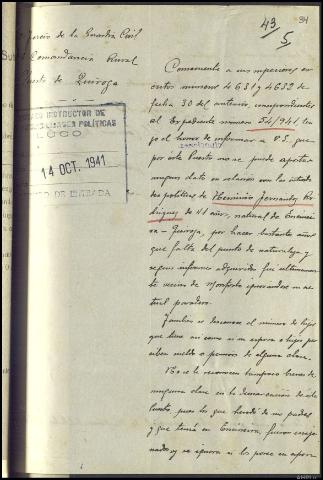 43/5
94
Guardia Civil
Comandancia Rural
Puesto de Quiroga
INSTRUCTOR DE
POLÍTICAS
LUGO
14 OCT. 1941
DE ENTRADA
Consecuente a sus superiores es-
critos números 4631 y 4632 de
fecha 30 del anterior, correspondientes
al Expediente número 54/941, ten-
go el honor de informar a V.S. que
por este Puesto no se puede aportar
ningún dato en relación con las
políticas de Herminio Fernández Ro-
dríguez de 41 años, natural de Encinei-
ra - Quiroga, por hacer bastantes años
que falta del punto de naturaleza y
según informes adquiridos fué últimamente
vecino de Monforte ignorándose su ac-
tual paradero.
Familia se desconoce el número de hijos
que tiene así como si su esposa o hijos per-
ciben sueldo o pensión de alguna clase.
No se le reconocen tampoco bienes de
ninguna clase en la demarcación de este
Puesto, pues los que heredó de sus padres
y que tenía en Encineira, fueron enaje-
nados y se ignora si los posee su esposa